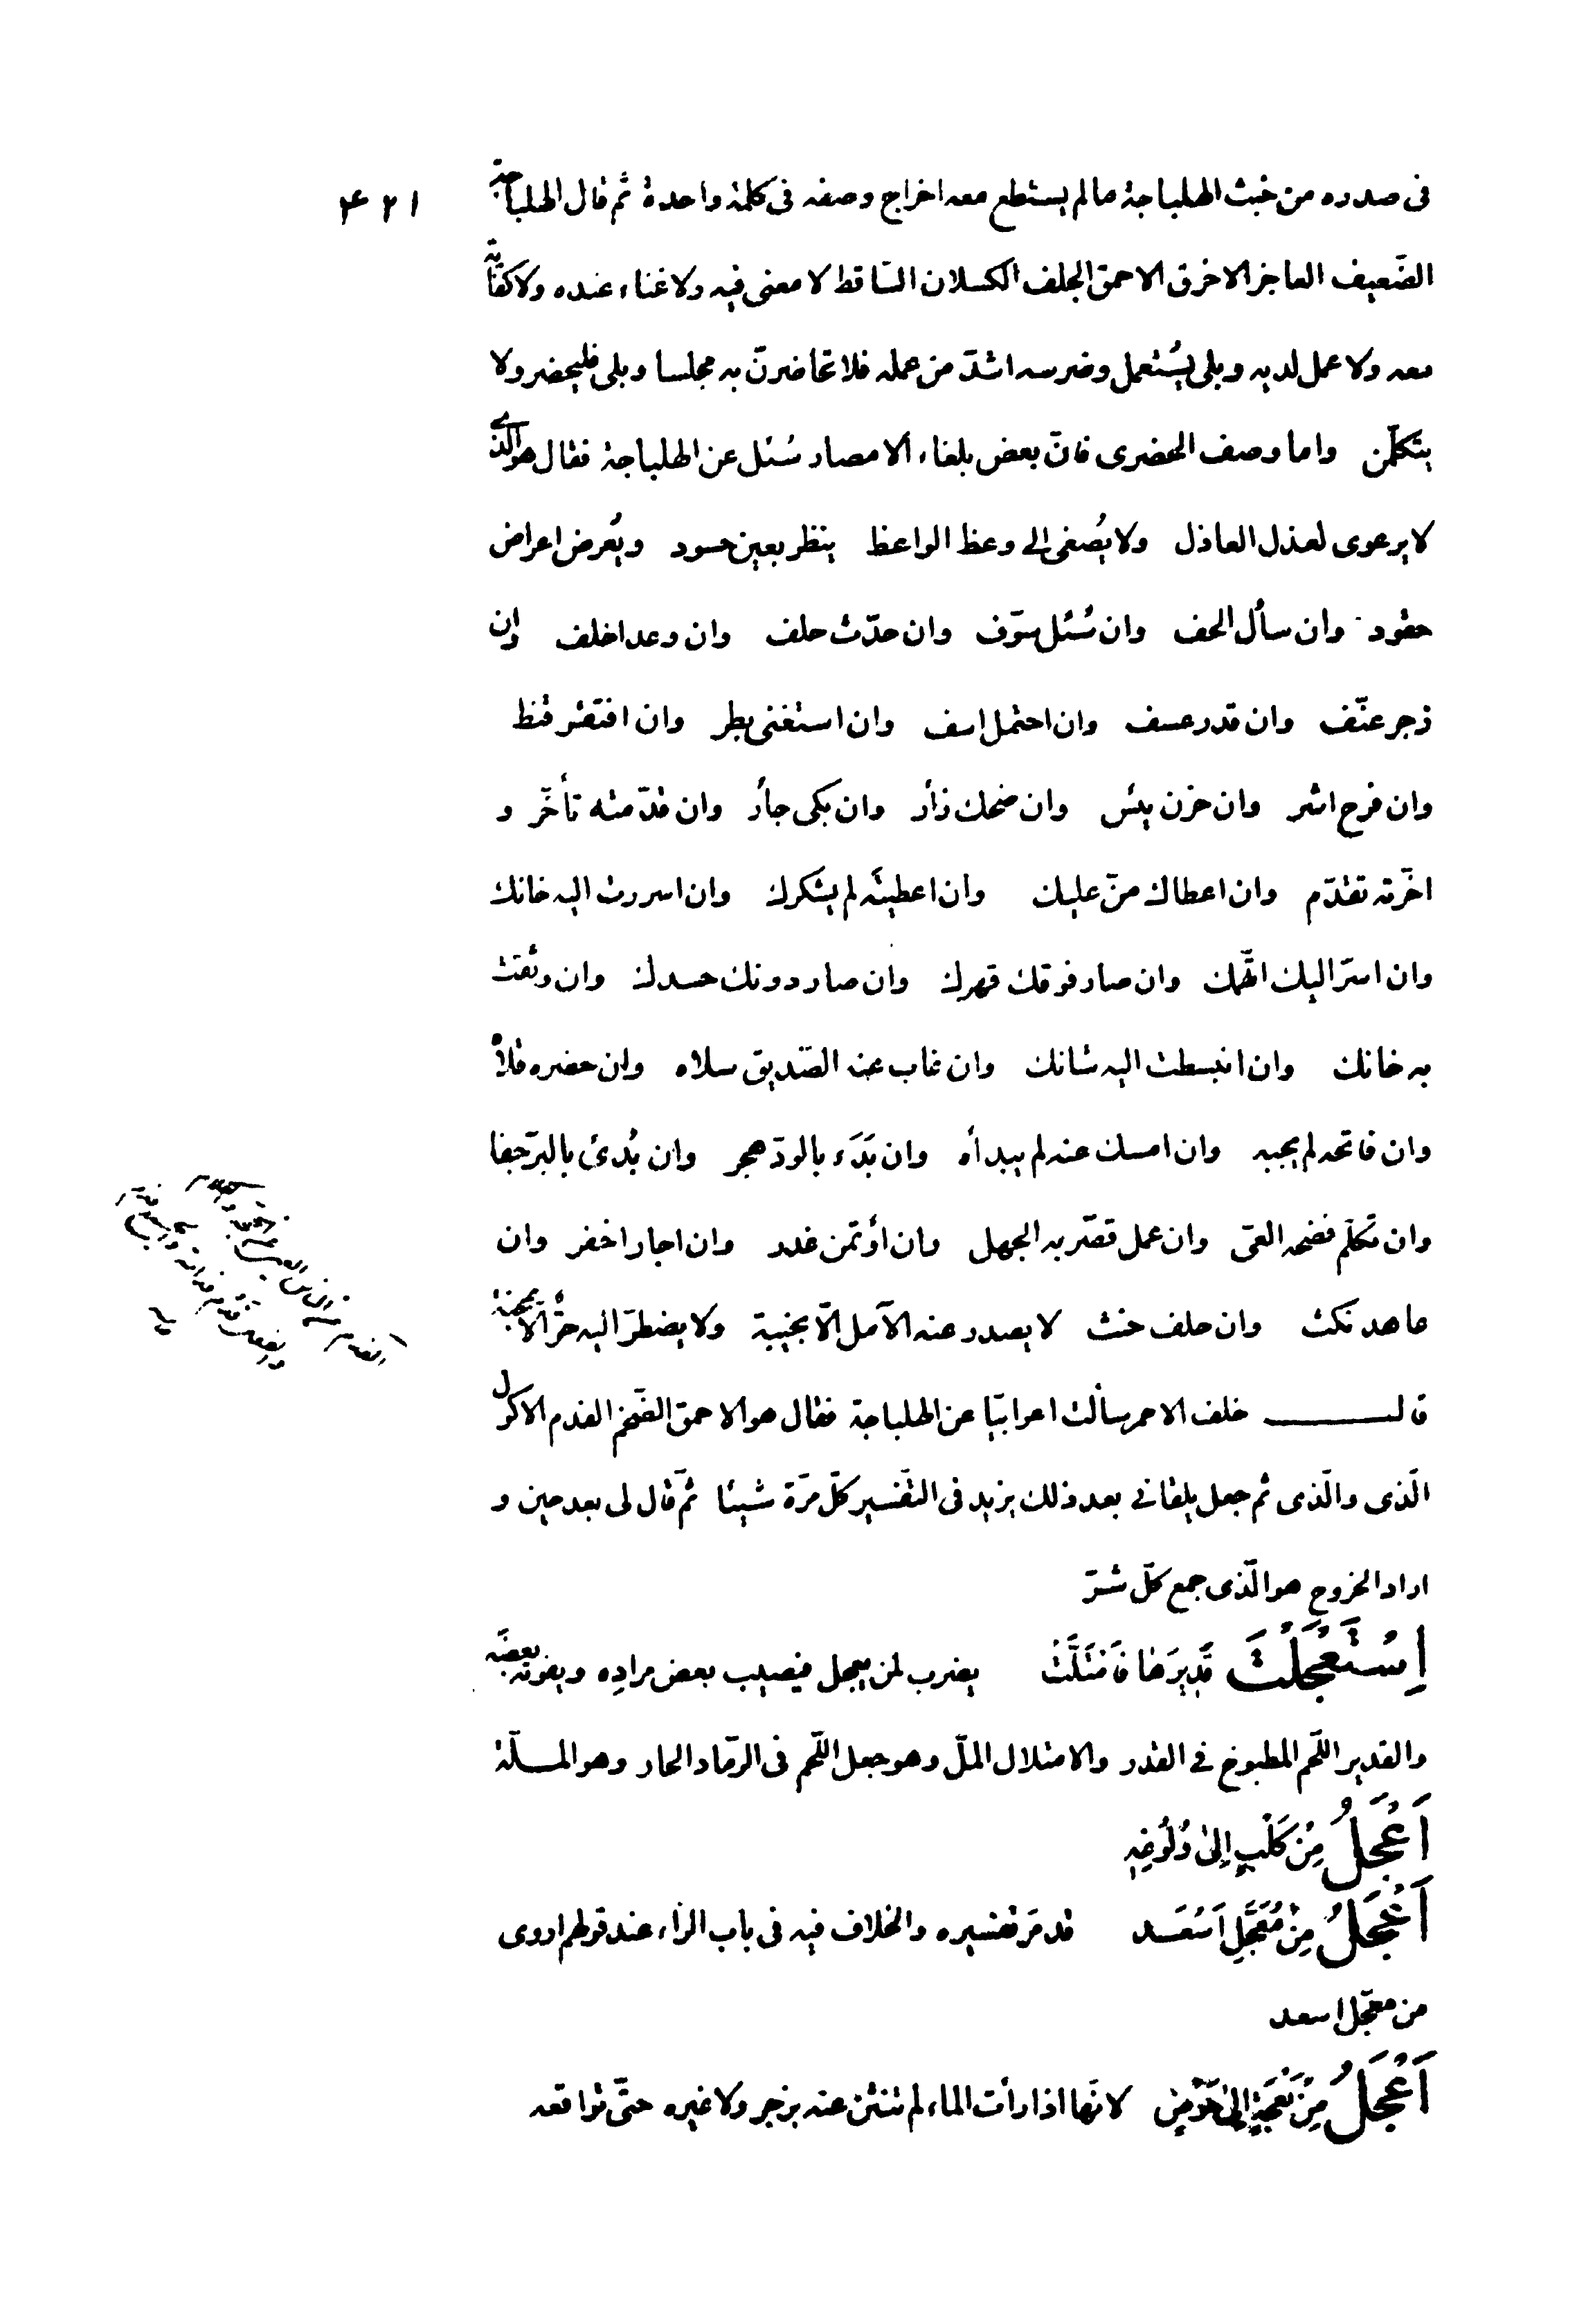 ٤٢١
فى صدره من خبث الهلباجة ما لم يستطع معه اخراج وصفه فى كلمة واحدة ثم قال الهلباجة
الضّعيف العاجز الاخرق الاحمق الجلف الكسلان السّاقط لا معنى فيه ولا غناء عنده ولا كفاية
معه ولا عمل لديه وبلى يُستعمل وضرسه اشدّ من عمله فلا تحاضرنّ به مجلسا وبلى فليحضر ولا
يتكلّمن واما وصف الحضرى فانّ بعض بلغاء الامصار سُئل عن الهلباجة فقال هو الّذى
لا يرعوى لعذل العاذل ولا يُصغى الى وعظ الواعظ ينظر بعين حسود ويُعرض اعراض
حقود وان سأل الحف وان سُئل سوّف وان حدّث حلف وان وعد اخلف وان
زجر عنّف وان قدر عسف وان احتمل اسف وان استغنى بطر وان افتقر قنط
وان فرح اشر وان حزن يئس وان ضحك زأر وان بكى جأر وان قدّمته تأخّر و
اخّرته تقدّم وان اعطاك منّ عليك وان اعطيته لم يشكرك وان اسررت اليه خانك
وان اسرّ اليك اتّهمك وان صار فوقك قهرك وان صار دونك حسدك وان وثقت
به خانك وان انبسطت اليه شانك وان غاب عنه الصّديق سلاه وان حضره قلاه
وان فاتحه لم يجبه وان امسك عنه لم يبدأه وان بَدَء بالودّ هجر وان بُدئ بالبرّ جفا
وان تكلّم فضحه العىّ وان عمل قصّر به الجهل وان أوتمن غدر وان اجار اخفر وان
عاهد نكث وان حلف حنث لا يصدر عنه الآمل الّا بخيبة ولا يضطرّ اليه حرّ الّا بمحنة
قال خلف الاحمر سألت اعرابيّا عن الهلباجة فقال هو الاحمق الضّخم الفدم الاكول
الّذى والّذى ثم جعل يلقانى بعد ذلك يزيد فى التّفسير كلّ مرّة شيئا ثمّ قال لى بعد حين و
اراد الخروج هو الّذى جمع كلّ شرّ
اِسْتَعْجَلَتْ قَدِيرَهَا فَامْتَلَّتْ يضرب لمن يعجل فيصيب بعض مراده ويفوته بعضه
والقدير اللّحم المطبوخ فى القدر والامتلال الملّ وهو جعل اللّحم فى الرّماد الحار وهو الملّة
اَعْجَلُ مِنْ كَلْبٍ اِلىٰ وُلُوغِهِ
اَعْجَلُ مِنْ مُعَجَّلِ اَسْعَد قد مرّ تفسيره والخلاف فيه فى باب الرّاء عند قولهم اروى
من معجّل اسعد
اَعْجَلُ مِنْ نَعْجَةٍ اِلىٰ حَوْضٍ لانّها اذا رأت الماء لم تنثن عنه بزجر ولا غيره حتّى توافعه